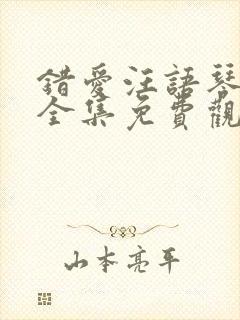 錯愛汪語琴
全集免費觀
山本亮平